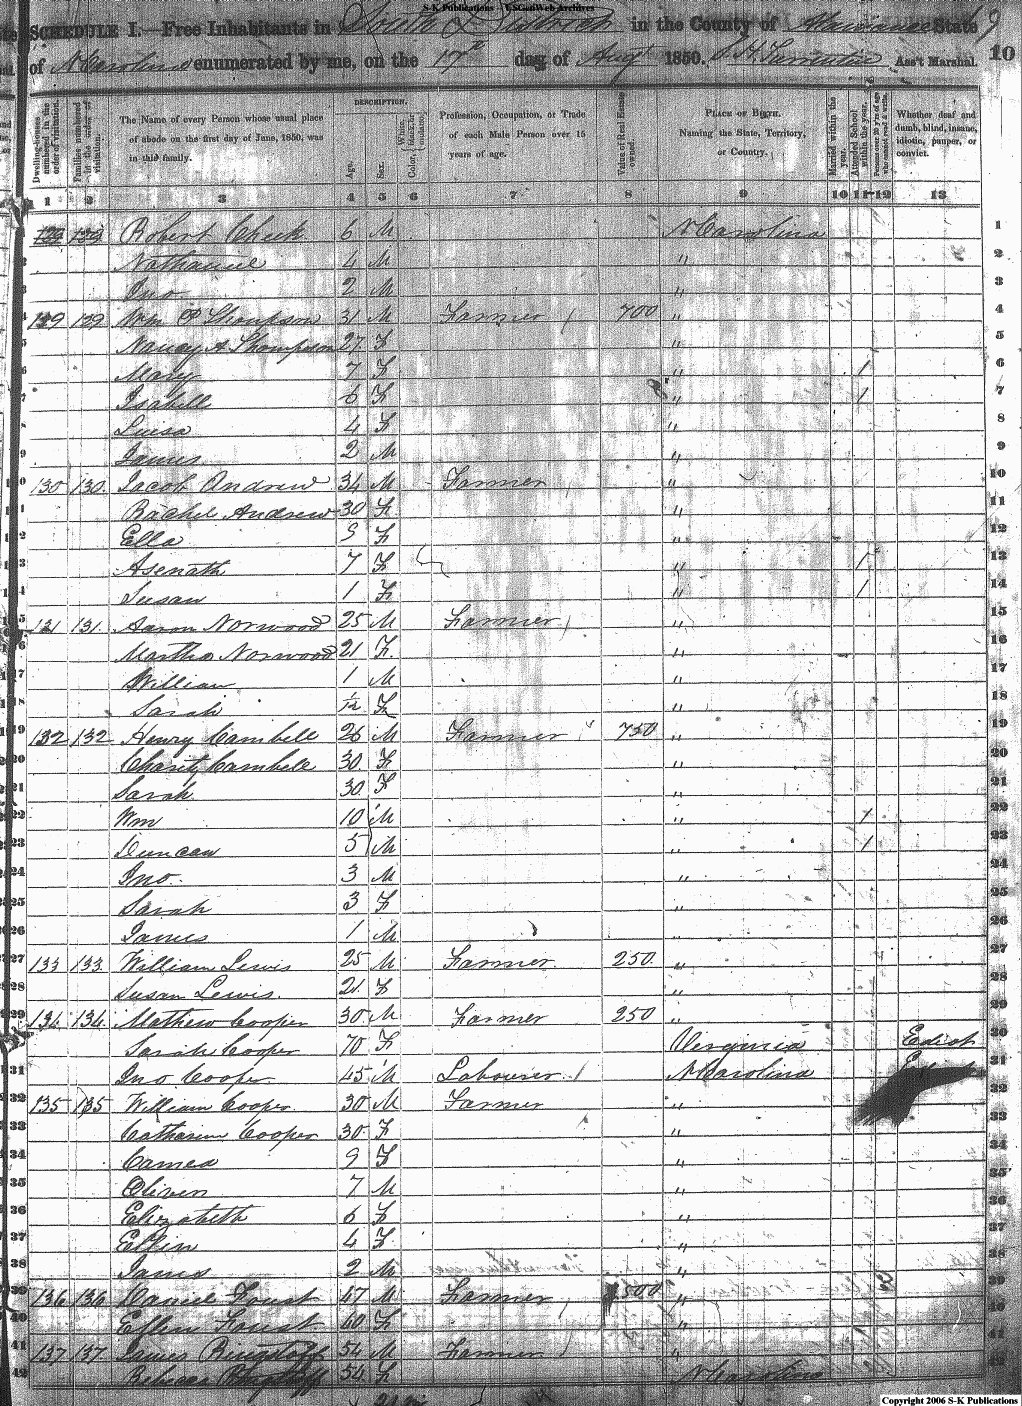 S-K Publications USGenWeb Archives
SCHEDULE I.—Free Inhabitants in South District in the County of Alamance State
of N Carolina enumerated by me, on the 17th day of Augt 1850. Ass't Marshal.
10
Dwelling-houses numbered in the order of visitation.
Families numbered in the order of visitation.
The Name of every Person whose usual place of abode on the first day of June, 1850, was in this family.
DESCRIPTION.
Age.
Sex.
White, Color, black, or mulatto.
Profession, Occupation, or Trade of each Male Person over 15 years of age.
Value of Real Estate owned.
PLACE OF BIRTH. Naming the State, Territory, or Country.
Married within the year.
Attended School within the year.
Persons over 20 y'rs of age who cannot read & write.
Whether deaf and dumb, blind, insane, idiotic, pauper, or convict.
1 2 3 4 5 6 7 8 9 10 11 12 13
139 Robert Cheek 6 M N Carolina 1
2 Nathaniel 4 M " 2
3 Jno 2 M " 3
129 129 Wm P Thompson 31 M Farmer 700 " 4
5 Nancy A Thompson 27 F " 5
6 Mary 7 F " 1 6
7 Isabell 6 F " 1 7
Luisa 4 F " 8
9 James 2 M " 9
130 130 Jacob Andrew 34 M Farmer " 10
1 Rachel Andrew 30 F " 11
2 Ella 9 F " 12
3 Asenath 7 F " 1 13
4 Susan 1 F " 1 14
131 131 Aaron Norwood 25 M Farmer " 15
16 Martha Norwood 21 F " 16
17 William 1 M " 17
18 Sarah 1/12 F " 18
19 132 132 Henry Cambell 26 M Farmer 750 " 19
20 Charity Cambell 30 F " 20
21 Sarah 30 F " 21
22 Wm 10 M " 1 22
23 Duncan 5 M " 1 23
24 Jno. 3 M " 24
25 Sarah 3 F " 25
26 James 1 M " 26
27 133 133 William Lewis 25 M Farmer 250 " 27
28 Susan Lewis 21 F " 28
29 134 134 Mathew Cooper 30 M Farmer 250 " 29
Sarah Cooper 70 F Virginia Ediot 30
31 Jno Cooper 45 M Labourer N Carolina 31
32 135 135 William Cooper 30 M Farmer " 32
33 Catharine Cooper 30 F " 33
34 9 F " 34
35 Oliver 7 M 35
36 Elizabeth 6 F " 36
37 4 F " 37
38 James 2 M " 38
39 136 136 Daniel Foust 47 M Farmer 500 " 39
40 Effen Foust 40 F " 40
41 137 137 James 54 M Farmer " 41
42 Rebecca 54 F N Carolina 42
Copyright 2006 S-K Publications